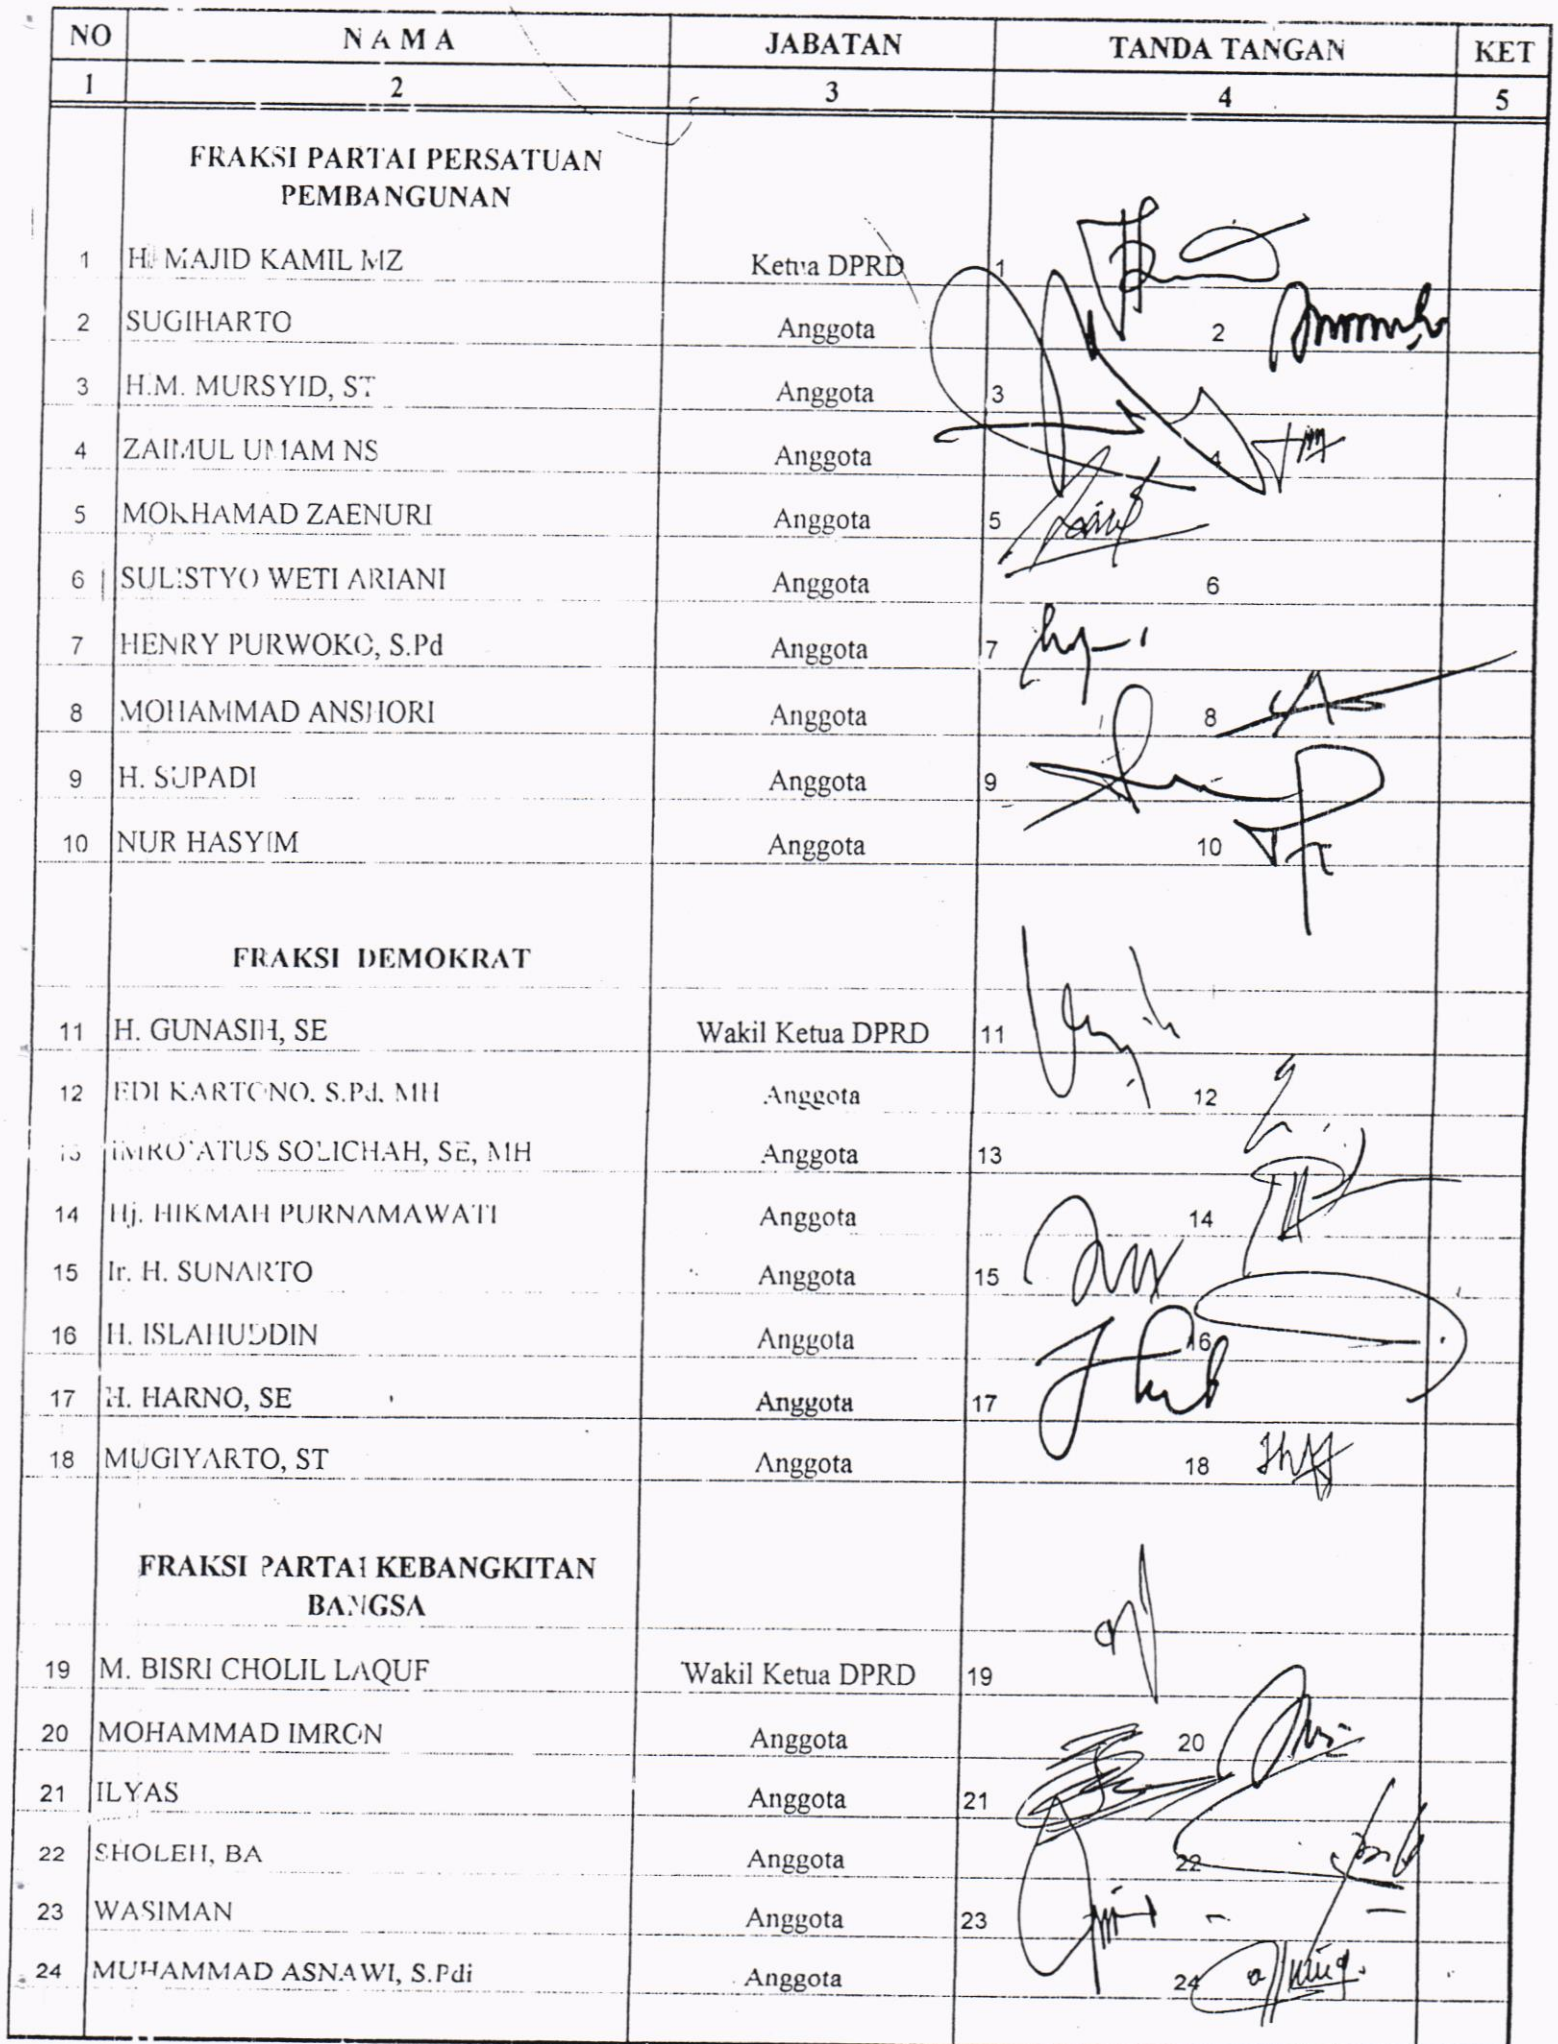 NO NAMA JABATAN TANDA TANGAN KET
1 2 3 4 5
FRAKSI PARTAI PERSATUAN
PEMBANGUNAN
1 H. MAJID KAMIL MZ Ketua DPRD 1
2 SUGIHARTO Anggota 2
3 H.M. MURSYID, ST Anggota 3
4 ZAIMUL UMAM NS Anggota 4
5 MOKHAMAD ZAENURI Anggota 5
6 SULISTYO WETI ARIANI Anggota 6
7 HENRY PURWOKO, S.Pd Anggota 7
8 MOHAMMAD ANSHORI Anggota 8
9 H. SUPADI Anggota 9
10 NUR HASYIM Anggota 10
FRAKSI DEMOKRAT
11 H. GUNASIH, SE Wakil Ketua DPRD 11
12 EDI KARTONO. S.Pd. MH Anggota 12
13 IMRO'ATUS SOLICHAH, SE, MH Anggota 13
14 Hj. HIKMAH PURNAMAWATI Anggota 14
15 Ir. H. SUNARTO Anggota 15
16 H. ISLAHUDDIN Anggota 16
17 H. HARNO, SE Anggota 17
18 MUGIYARTO, ST Anggota 18
FRAKSI PARTAI KEBANGKITAN
BANGSA
19 M. BISRI CHOLIL LAQUF Wakil Ketua DPRD 19
20 MOHAMMAD IMRON Anggota 20
21 ILYAS Anggota 21
22 SHOLEH, BA Anggota 22
23 WASIMAN Anggota 23
24 MUHAMMAD ASNAWI, S.Pdi Anggota 24